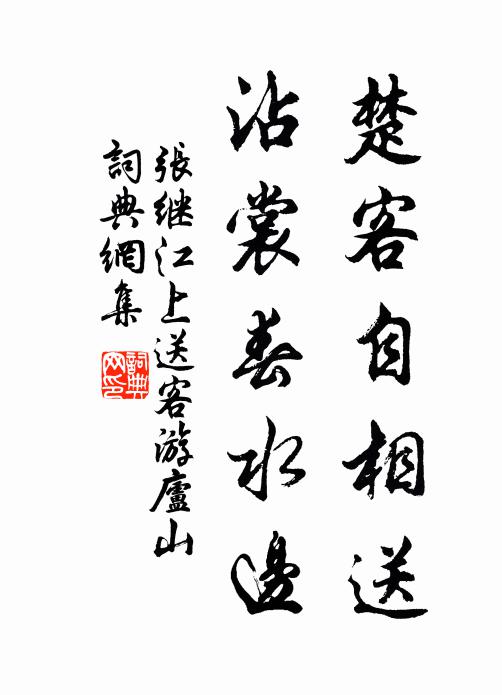 楚客自相送
沾裳春水邊
張继江上送客游廬山
詞典網集
詞典网印